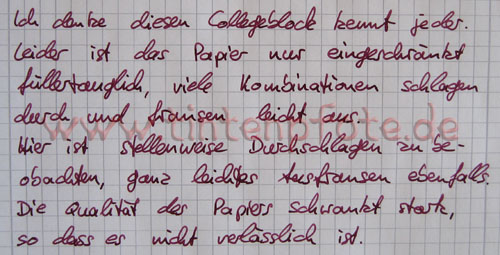 Ich denke diesen Collegeblock kennt jeder.
Leider ist das Papier nur eingeschränkt
füllertauglich, viele Kombinationen schlagen
durch und fransen leicht aus.
www.tintenpfote.de
Hier ist stellenweise Durchschlagen zu be-
obachten, ganz leichtes Ausfransen ebenfalls.
Die Qualität des Papiers schwankt stark,
so dass es nicht verlässlich ist.